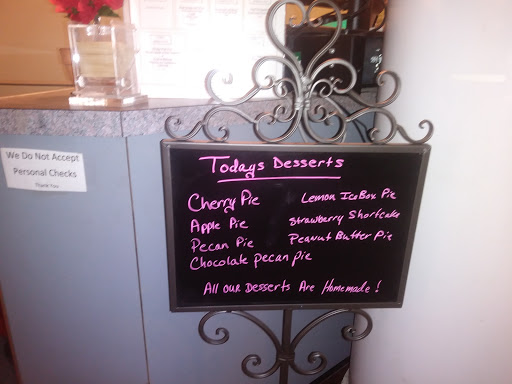 We Do Not Accept
Personal Checks
Thank You
Todays Desserts
Cherry Pie
Apple Pie
Pecan Pie
Chocolate pecan pie
Lemon IceBox Pie
Strawberry Shortcake
Peanut Butter Pie
All our Desserts Are Homemade!